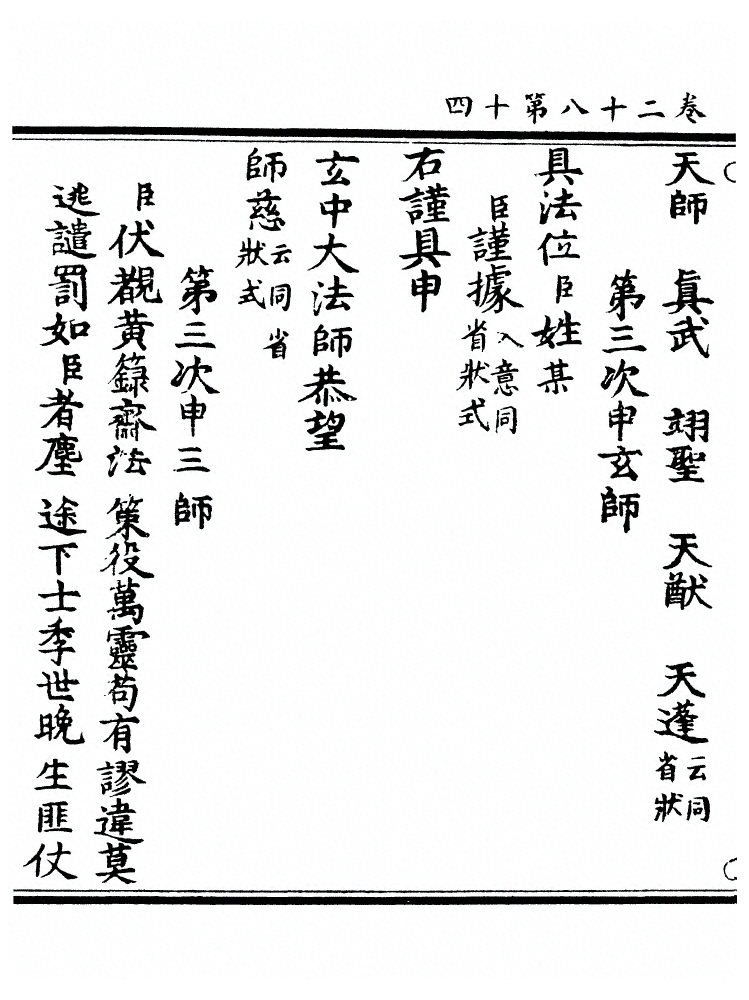 卷二十八第十四
天師　眞武　翊聖　天猷　天蓬云同省狀
第三次申玄師
具法位臣姓某
臣謹據入意同省狀式
右謹具申
玄中大法師恭望
師慈云同省狀式
第三次申三師
臣伏覩黃籙齋法策役萬靈苟有謬違莫
逃譴罰如臣者塵途下士季世晚生匪仗